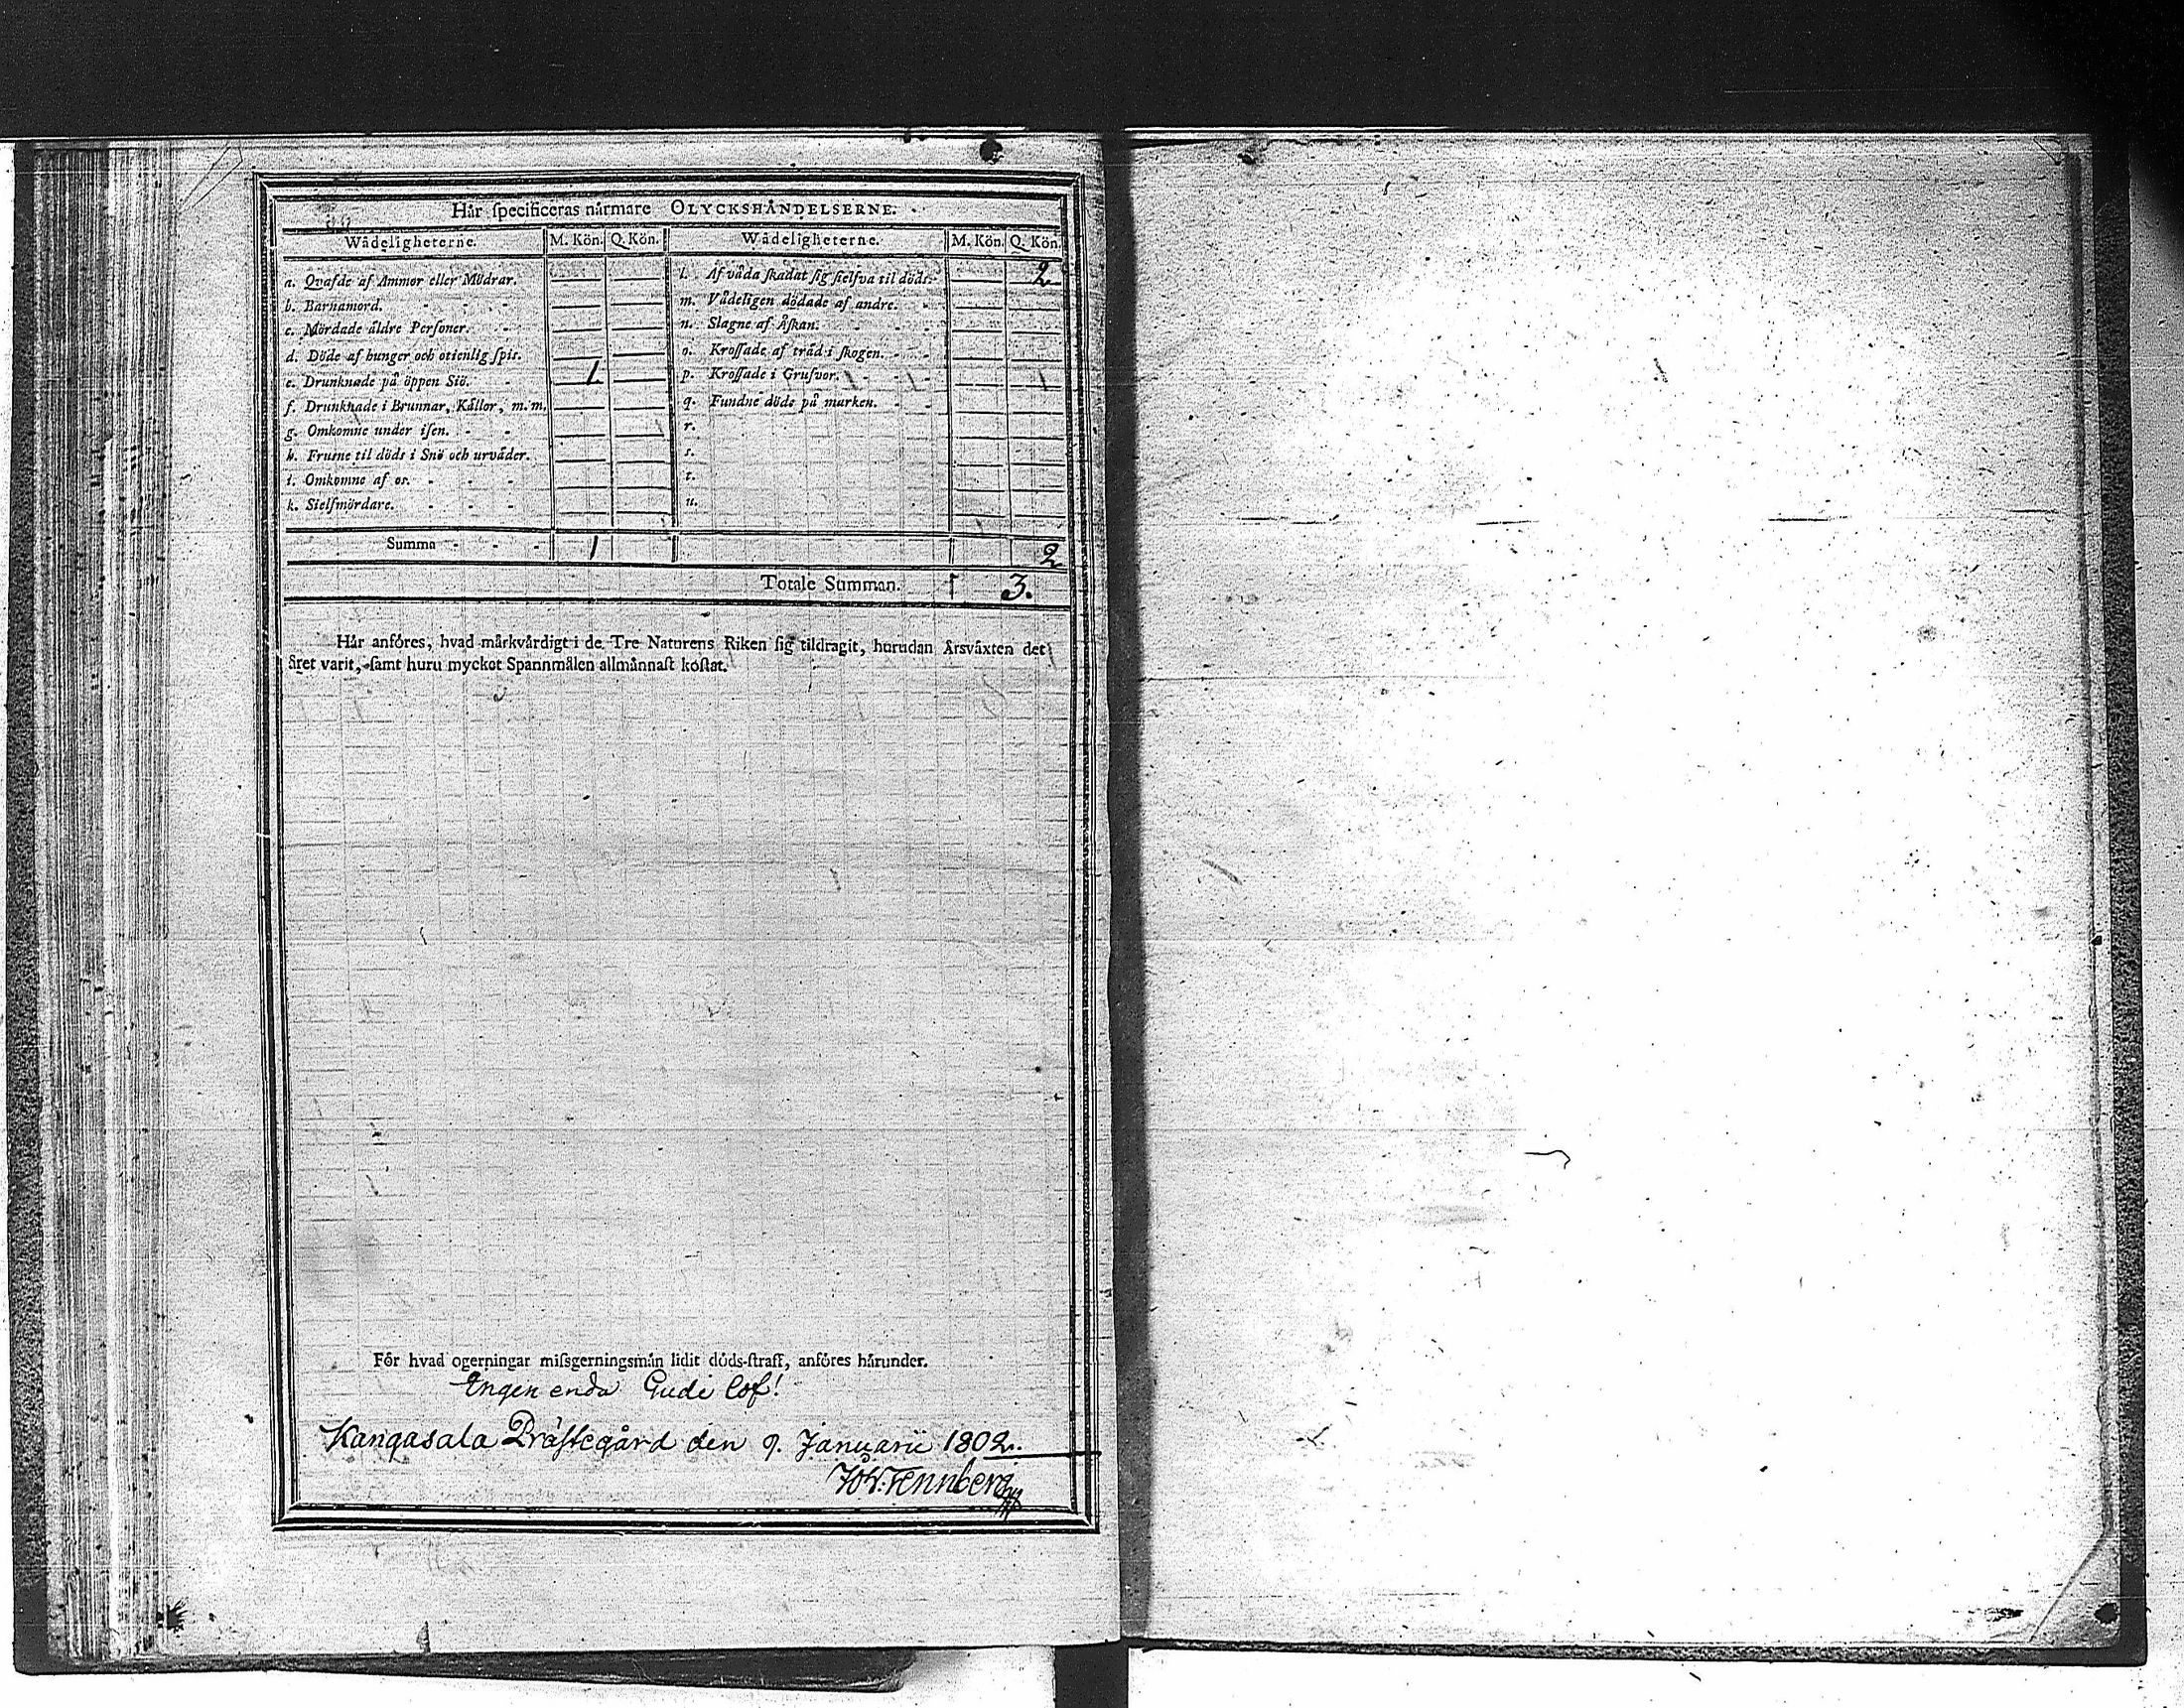 Hår ſpecificeras nårmare OLYCKSHÅNDELSERNE.
Wådeligheterne. M. Kön. Q. Kön. Wådeligheterne. M. Kön. Q. Kön.
a. Qvafde af Ammor eller Mödrar. — — l. Af våda ſkadat ſig ſielfva til döds. — 2
b. Barnamord. — — m. Vådeligen dödade af andre. — —
c. Mördade åldre Perſoner. — — n. Slagne af Åſkan. — —
d. Döde af hunger och otienlig ſpis. — — o. Kroſſade af träd i ſkogen. — —
e. Drunknade på öppen Siö. 1 — p. Kroſſade i Grufvor. — —
f. Drunknade i Brunnar, Källor, m. m. — — q. Fundne döde på marken. — —
g. Omkomne under iſen. — — r. — —
h. Fruſne til döds i Snö och urväder. — — s. — —
i. Omkomne af os. — — t. — —
k. Sielfmördare. — — u. — —
Summa 1 2
Totale Summan. 3.
Hår anföres, hvad mårkvårdigt i de Tre Naturens Riken ſig tildragit, hurudan Årsvåxten det
året varit, ſamt huru mycket Spannmålen allmånnaſt koſtat.
För hvad ogerningar miſsgerningsmån lidit döds-ſtraff, anföres hårunder.
Engen enda Gudi lof!
Kangasala Präſtegård den 9. Januarii 1802.
Joh: Tennberg